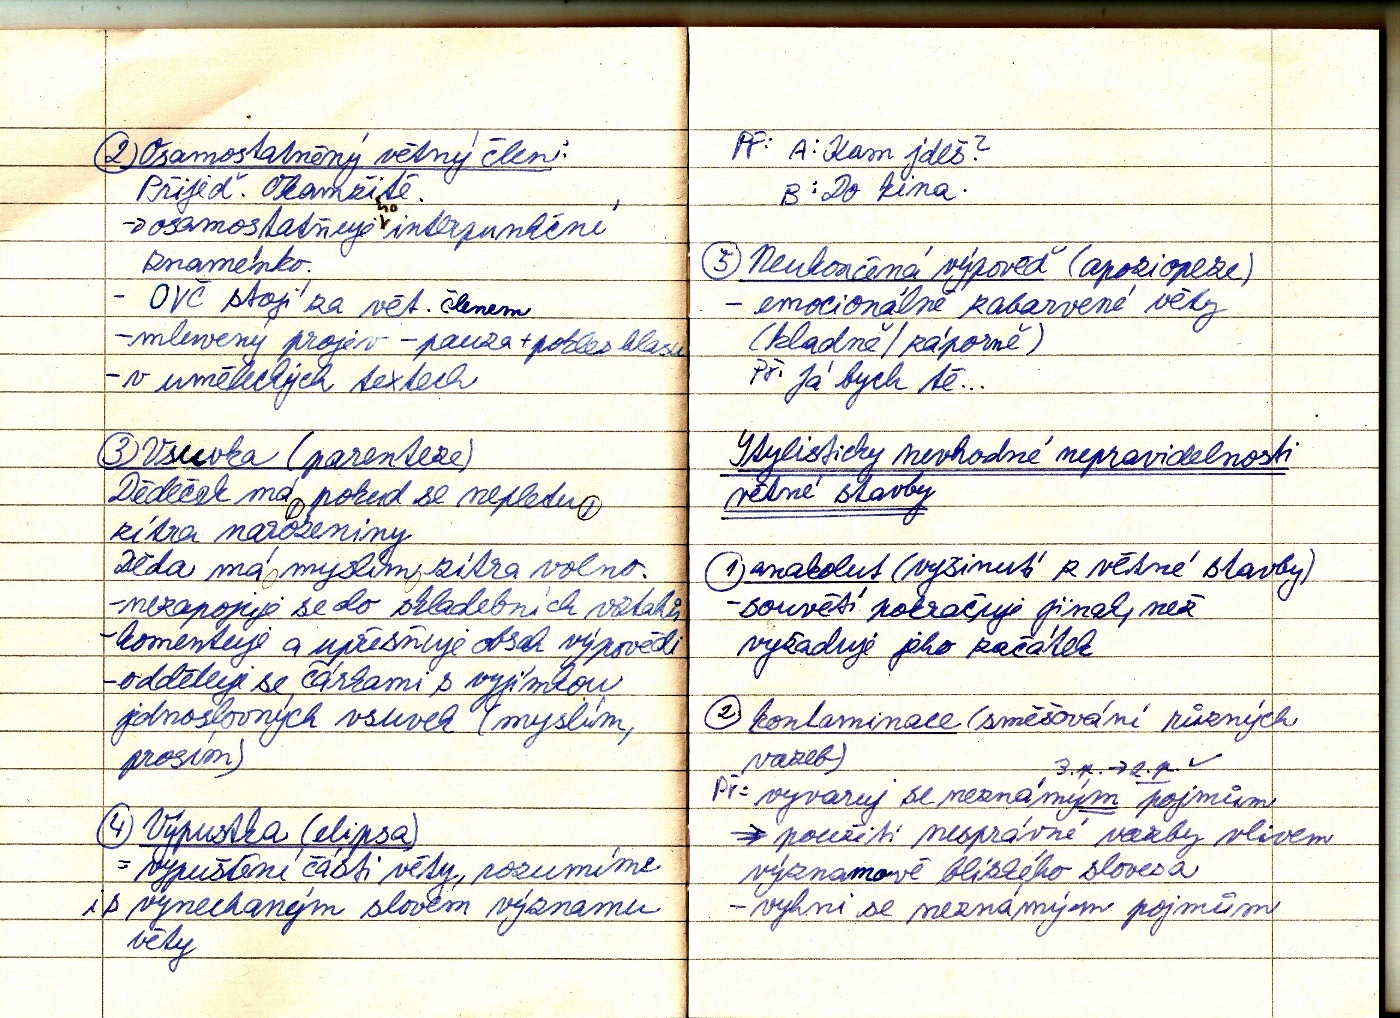 ② Osamostatněný větný člen:
Přijeď. Okamžitě.
→ osamostatňuje ho interpunkční
znaménko.
- OVČ stojí za vět. členem
- mluvený projev - pauza + pokles hlasu
- v uměleckých textech
③ Vsuvka (parenteze)
Dědeček má, pokud se nepletu,
zítra narozeniny
Děda má, myslím, zítra volno.
- nezapojuje se do skladebních vztahů
- komentuje a upřesňuje obsah výpovědi
- odděluje se čárkami s vyjímkou
jednoslovných vsuvek (myslím,
prosím)
④ Výpustka (elipsa)
= vypuštění části věty, rozumíme
i s vynechaným slovem významu
věty
Př: A: Kam jdeš?
B: Do kina.
⑤ Neukončená výpověď (apoziopeze)
- emocionálně zabarvené věty
(kladně/záporně)
Př: Já bych tě...
Stylisticky nevhodné nepravidelnosti
větné stavby
① anakolut (vyšinutí z větné stavby)
- souvětí pokračuje jinak, než
vyžaduje jeho začátek
② kontaminace (směšování různých
vazeb)
3.p. → 2.p. ✓
Př: vyvaruj se neznámým pojmům
⇒ použití nesprávné vazby vlivem
významově blízkého slovesa
- vyhni se neznámým pojmům